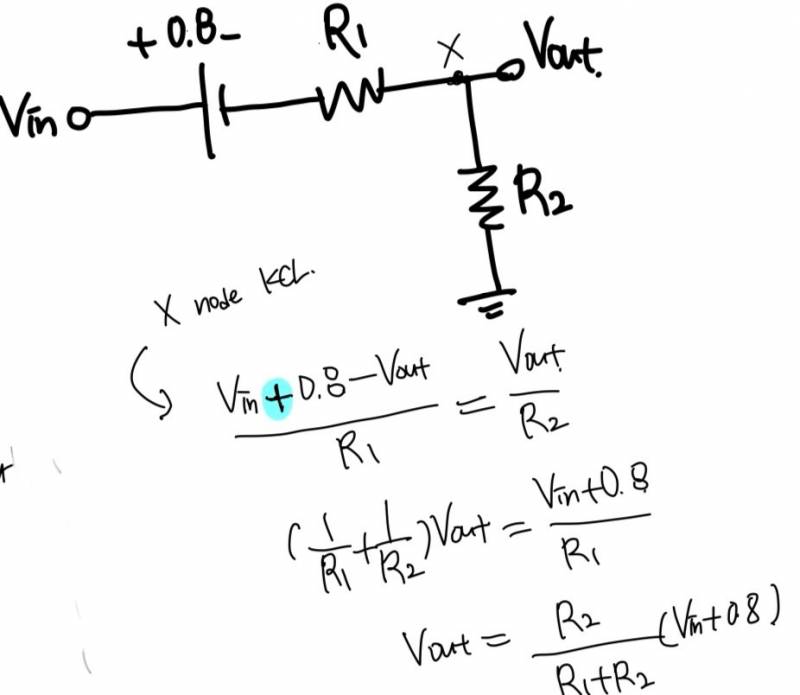 + 0.8 -
R1
X
Vout.
Vin
R2
X node KCL.
(Vin + 0.8 - Vout) / R1 = Vout / R2
(1/R1 + 1/R2) Vout = (Vin + 0.8) / R1
Vout = R2 / (R1 + R2) (Vin + 0.8)